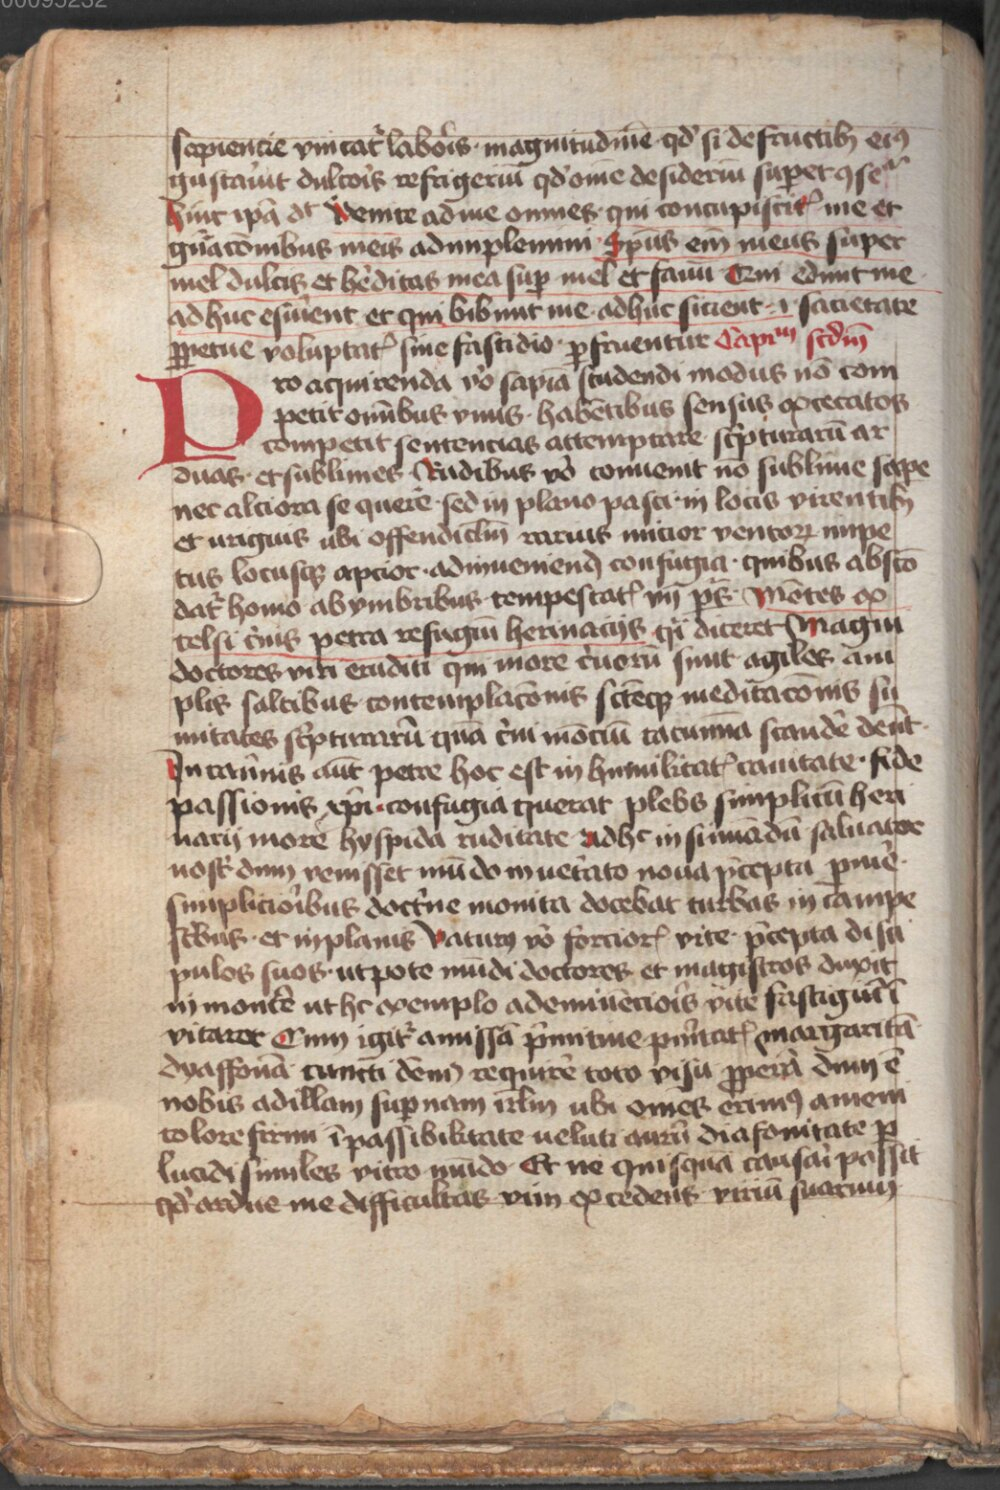 00095232
sapiencie vincat᷑ laboris · magnitudinē · qd' si de fructib9 ei9
gustav̄it dulcoris refrigeriū qd' om̄e desideriū superet 9seq᷑
hinc ip̄a dt Venite ad me omnes · qui concupiscit᷑ me et
gn̄acōnibus meis adimplemini Spūs em̄ meus super
mel dulcis et hēditas mea sup mel et favū Qui edunt me ·
adhuc esurient et qui bibunt me · adhuc sicient · i · sacietate
ꝓpetue voluptat᷑ sine fastidio · ꝑfruentur Capim scd'm
Pro acquirenda v̊o sapīa studendi modus nō com
petit omībus vnus · habētibus sensus excecatos
competit sentencias attemptare · sc̄pturarū ar
duas · et sublimes Rudibus v̊o convenit nō sublime sape
nec alciora se querē · sed in plano pasci · in locis virentib9
et uriguis ubi offendiclm̄ rarius micior ventoꝝ impe
tus locusqꝫ apcior · adinueniend confugia · quibus abscō
dat᷑ homo ab ymbribus · tempestat᷑ vn̄ ps̄ · Mōtes ex
celsi cervis petra refugiū herinaciis q᷑i diceret Magni
doctores viri eruditi qui more cervorū sunt agiles am
plis saltibus · contemplacōnis sctēqꝫ meditacōnis su
mitates sc̄pturarū quā cervi mōciū cacumina scandē dent̄ ·
In cav̄nis aut̄ petre hoc est in humilitat᷑ cavitate · fide
passionis xp̄i · confugia querat plebs simpliciū heri
nacij morē hyspida ruditate Adhc insinuādū salvator
nost᷑ dum venisset mūdo inveterato nova pc̄epta ꝓmē ·
simplicioribus doctr̄ine monita docebat turbas in campe
strib9 · et in planis Daturus v̊o forcior᷑ vite · pc̄epta disci
pulos suos · utpote mūdi doctores et magistros duxit
in montē ut hc exemplo ad eminēcioris vite fastigiū ī
vitaret Cum igit᷑ amissā pm̄itive puritat᷑ margaritā
dyaffonā cuncti dem̄ requirē toto visu ꝓpera dum ē
nobis ad illam supnam irl̄m ubi om̄es erim9 ameni
colore firmi īpassibilitate veluti aurū diafonitate ꝑ
lucidi similes vitro mūdo · Et ne quisquā causari possit
qd' arduē me difficultas vim excedens · viriū suarum